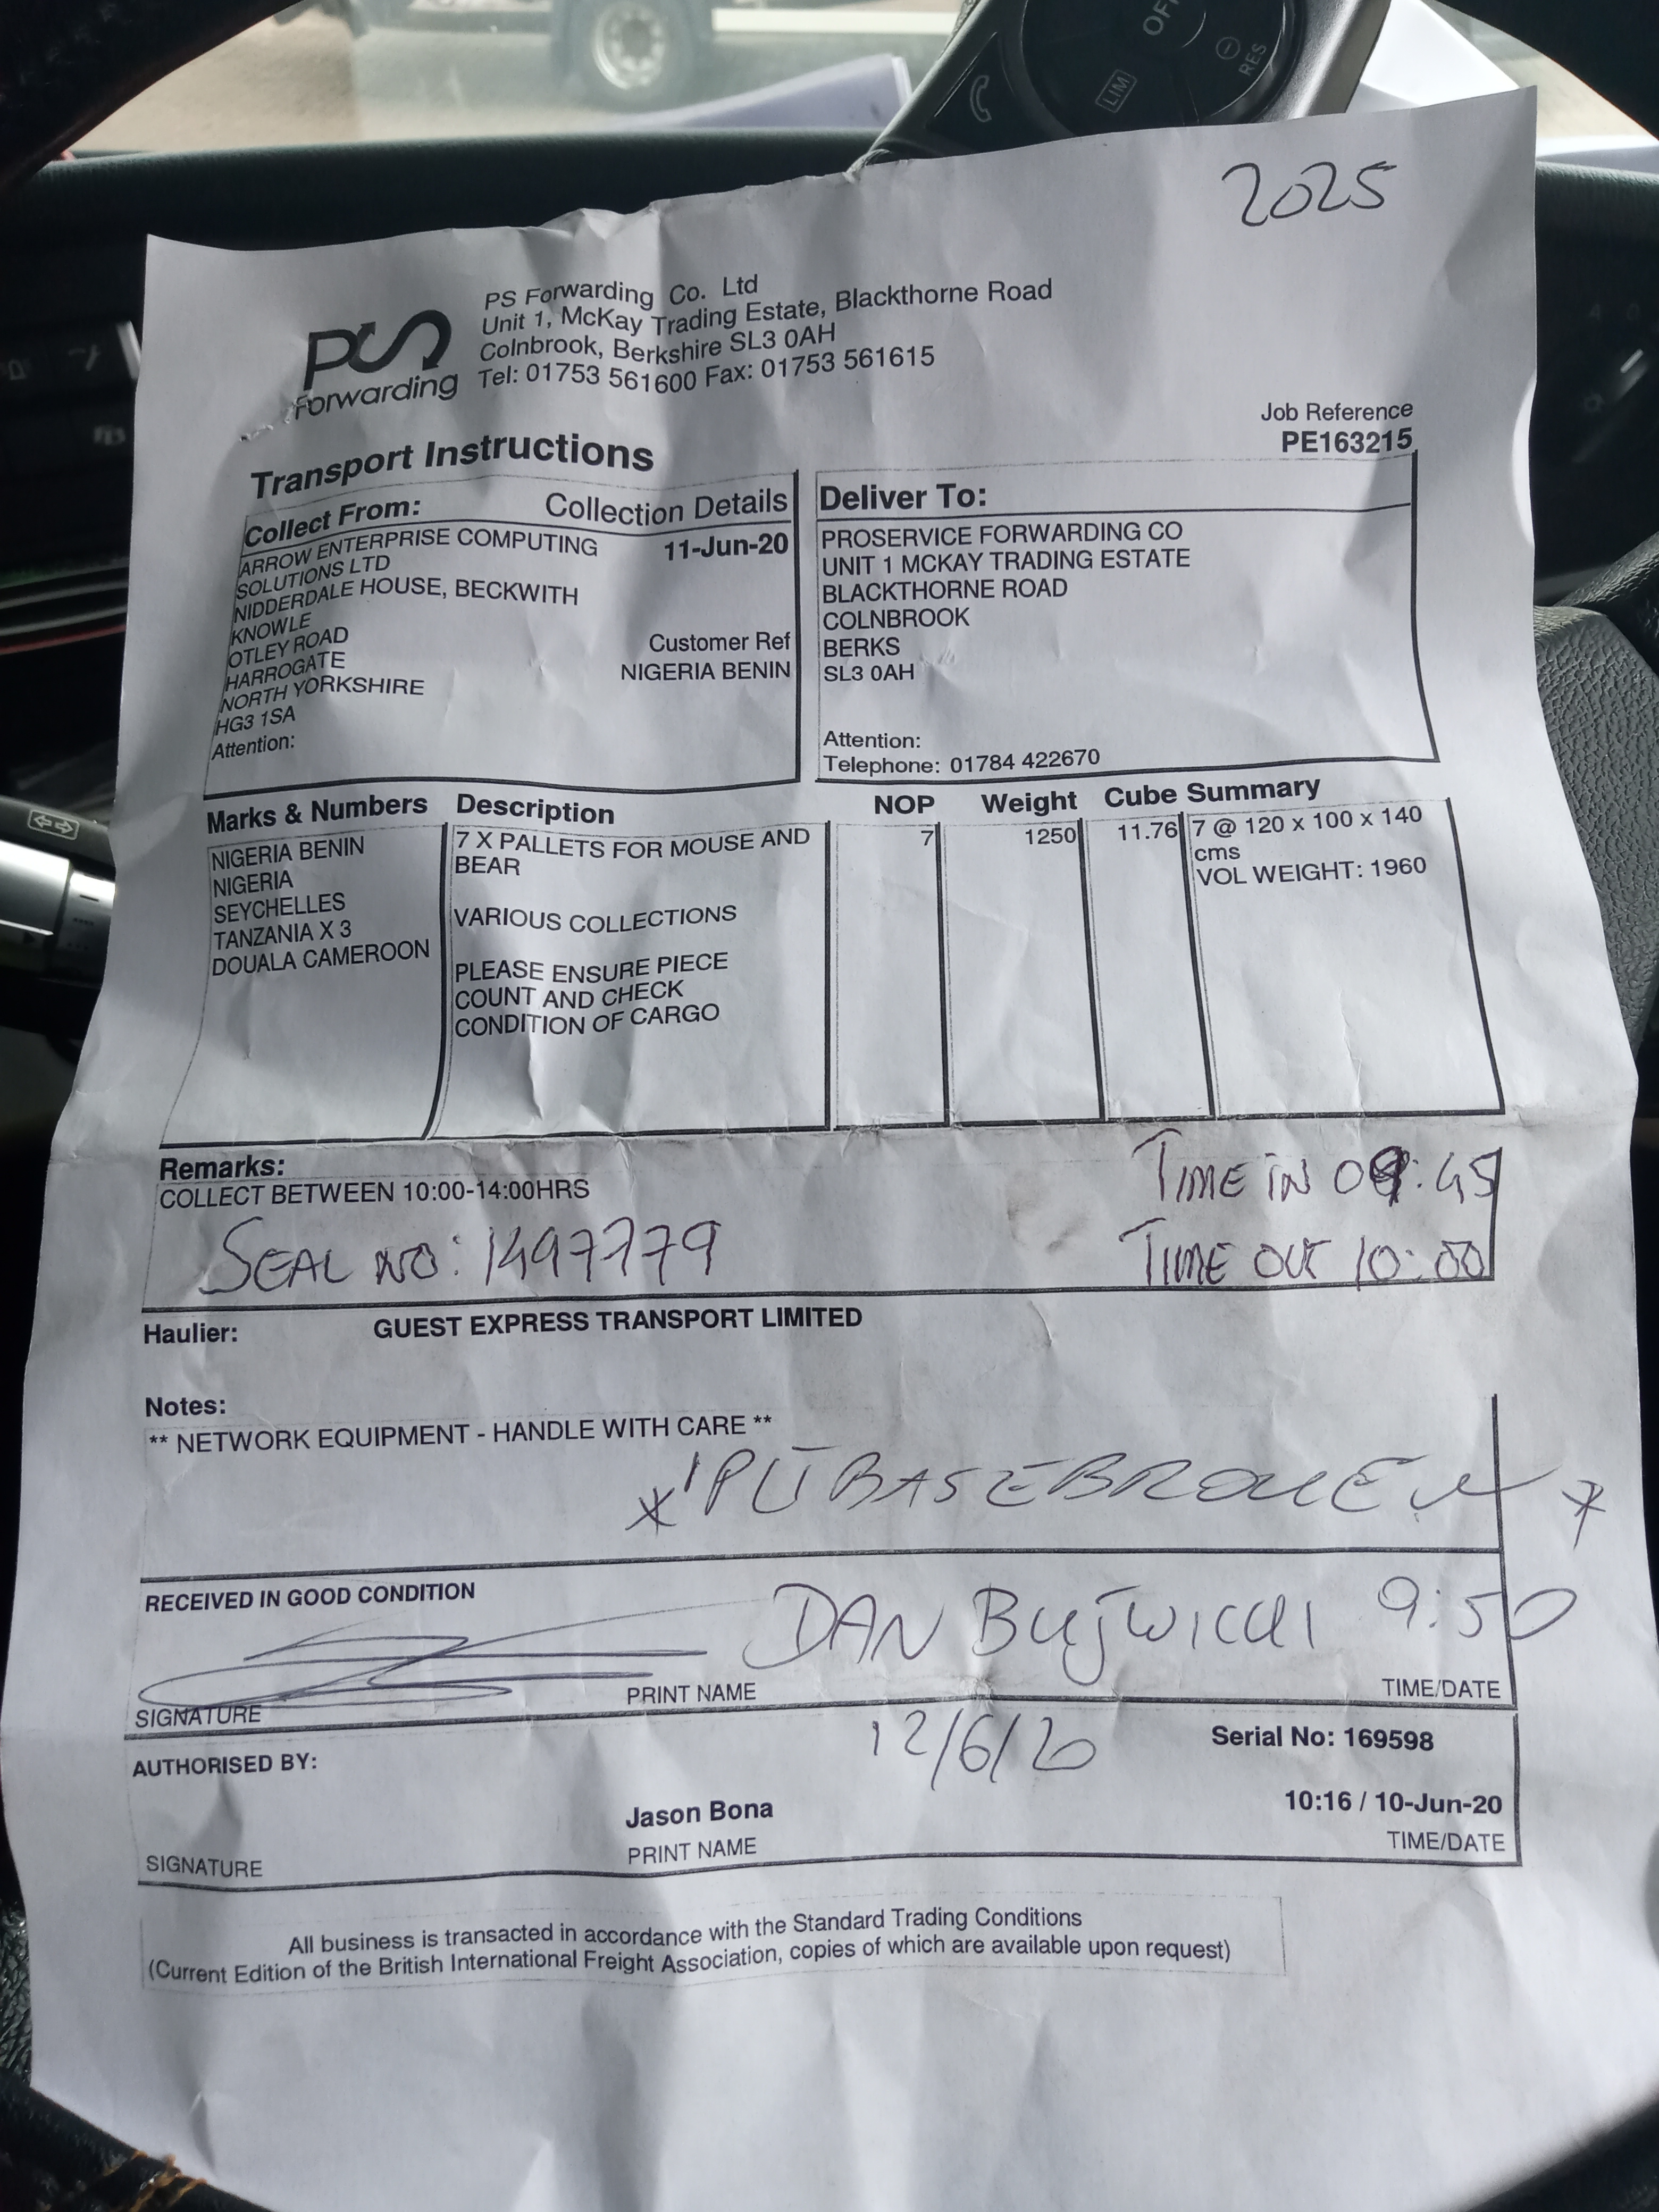 OFF
RES
LIM
2025
PS Forwarding Co. Ltd
Unit 1, McKay Trading Estate, Blackthorne Road
Colnbrook, Berkshire SL3 0AH
Tel: 01753 561600 Fax: 01753 561615
PS
Forwarding
Job Reference
PE163215
Transport Instructions
Collect From: Collection Details
ARROW ENTERPRISE COMPUTING 11-Jun-20
SOLUTIONS LTD
NIDDERDALE HOUSE, BECKWITH
KNOWLE
OTLEY ROAD
HARROGATE
NORTH YORKSHIRE
HG3 1SA
Attention:
Customer Ref
NIGERIA BENIN
Deliver To:
PROSERVICE FORWARDING CO
UNIT 1 MCKAY TRADING ESTATE
BLACKTHORNE ROAD
COLNBROOK
BERKS
SL3 0AH
Attention:
Telephone: 01784 422670
Marks & Numbers Description NOP Weight Cube Summary
NIGERIA BENIN
NIGERIA
SEYCHELLES
TANZANIA X 3
DOUALA CAMEROON
7 X PALLETS FOR MOUSE AND
BEAR
VARIOUS COLLECTIONS
PLEASE ENSURE PIECE
COUNT AND CHECK
CONDITION OF CARGO
7
1250
11.76
7 @ 120 x 100 x 140
cms
VOL WEIGHT: 1960
Remarks:
COLLECT BETWEEN 10:00-14:00HRS
TIME IN 09:45
SEAL NO: 1497779
TIME OUT 10:00
Haulier: GUEST EXPRESS TRANSPORT LIMITED
Notes:
** NETWORK EQUIPMENT - HANDLE WITH CARE **
BASE BROKEN *
RECEIVED IN GOOD CONDITION
DAN 9:50
SIGNATURE PRINT NAME TIME/DATE
12/6/20
AUTHORISED BY: Serial No: 169598
Jason Bona 10:16 / 10-Jun-20
SIGNATURE PRINT NAME TIME/DATE
All business is transacted in accordance with the Standard Trading Conditions
(Current Edition of the British International Freight Association, copies of which are available upon request)